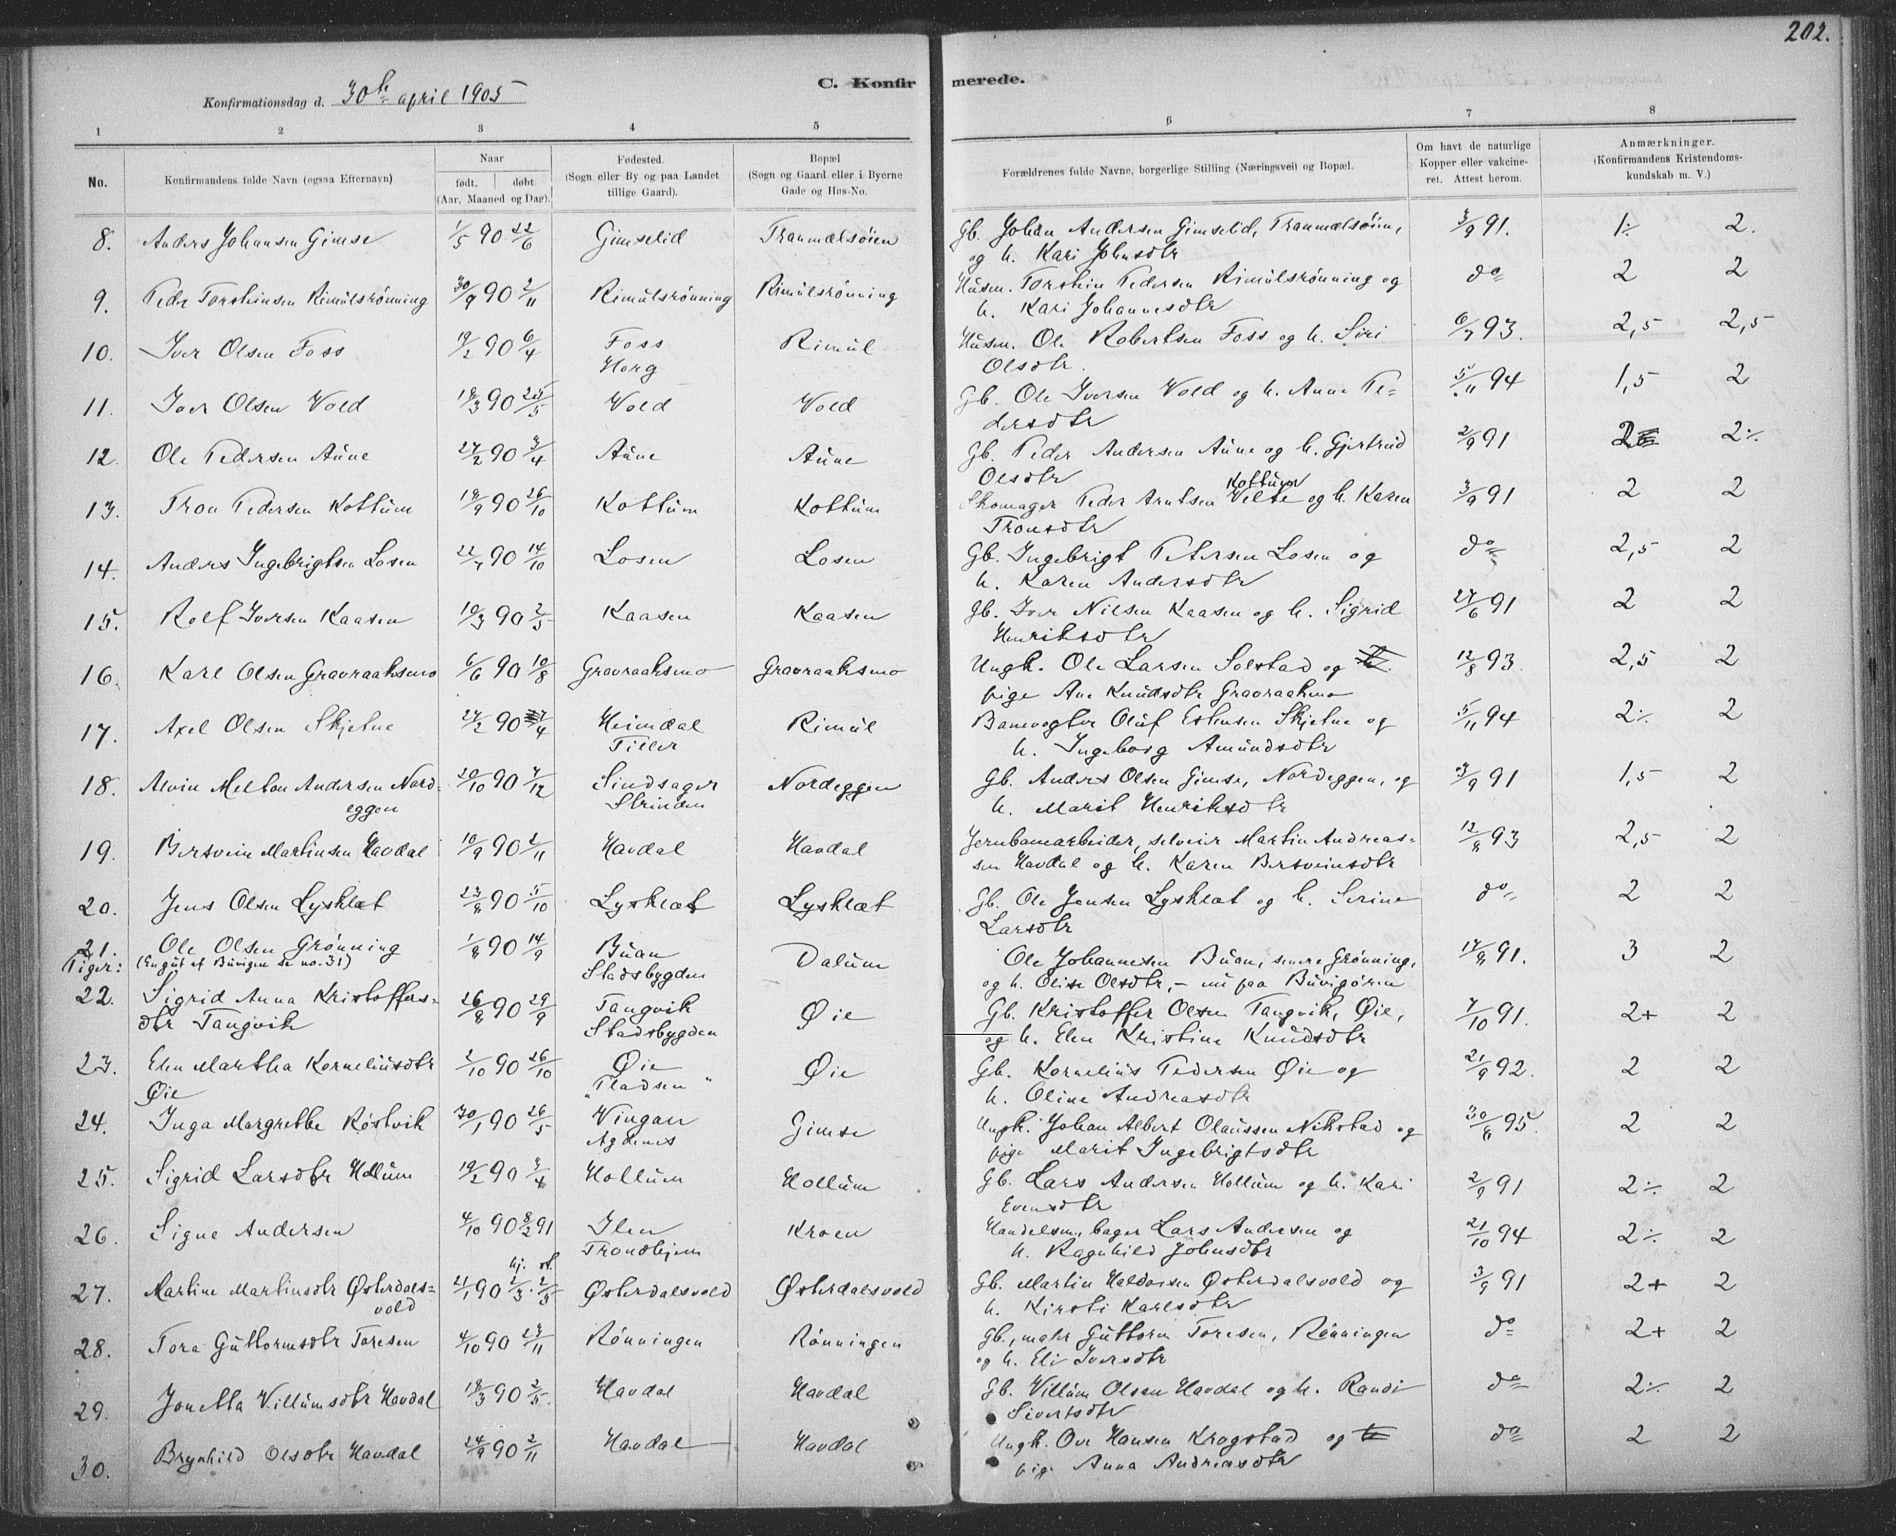 202.
Konfirmationsdag d. 30te april 1905
C. Konfirmerede.
1 2 3 4 5 6 7 8
No.
Konfirmandens fulde Navn (ogsaa Efternavn)
Naar
født. døbt.
(Aar, Maaned og Dag).
Fødested.
(Sogn eller By og paa Landet
tillige Gaard).
Bopæl
(Sogn og Gaard eller i Byerne
Gade og Hus-No.
Forældrenes fulde Navne, borgerlige Stilling (Næringsvei) og Bopæl.
Om havt de naturlige
Kopper eller vakcine-
ret. Attest herom.
Anmærkninger.
(Konfirmandens Kristendoms-
kundskab m. V.)
8. Anders Johansen Gimse 1/5 90 22/6 Gimselid Tranmælsøien Gb. Johan Andersen Gimselid, Tranmælsøien, 3/9 91. 1÷ 2.
og h. Kari Johnsdtr
9. Peder Torsteinsen Rimulsrønning 30/9 90 2/11 Rimulsrønning Rimulsrønning Husm. Torstein Pedersen Rimulsrønning og do 2 2
h. Kari Johannesdtr
10. Iver Olsen Foss 19/2 90 6/4 Foss Rimul Husm. Ole Robertsen Foss og h. Siri 6/7 93. 2,5 2,5
Horg Olsdtr.
11. Iver Olsen Vold 18/3 90 25/5 Vold Vold Gb. Ole Iversen Vold og h. Anne Pe- 5/11 94 1,5 2
dersdtr
12. Ole Pedersen Aune 27/2 90 7/4 Aune Aune Gb. Peder Andersen Aune og h. Gjertrud 2/9 91 2 2÷
Olsdtr
13. Tron Pedersen Kottum 18/9 90 26/10 Kottum Kottum Skomager Peder Arntsen Kottum og h. Karen 3/9 91 2 2
Tronsdtr
14. Anders Ingebrigtsen Losen 22/7 90 14/10 Losen Losen Gb. Ingebrigt Petersen Losen og do 2,5 2
h. Karen Andersdtr
15. Rolf Iversen Kaasen 10/3 90 2/5 Kaasen Kaasen Gb. Iver Nilsen Kaasen og h. Sigrid 27/6 91 2 2
Henriksdtr
16. Karl Olsen Gravraaksmo 6/6 90 10/8 Gravraaksmo Gravraaksmo Ungk. Ole Larsen Solstad og 12/8 93. 2,5 2
pige Ane Knudsdtr Gravraaksmo
17. Axel Olsen Skjetne 27/2 90 /4 Heimdal Rimul Banevogter Oluf Estensen Skjetne og 5/11 94 2÷ 2
Tiller h. Ingeborg Amundsdtr
18. Alvin Melton Andersen Nord- 20/10 90 7/12 Sindsager Nordeggen Gb. Anders Olsen Gimse, Nordeggen, og 3/9 91 1,5 2
eggen Strinden h. Marit Henriksdtr
19. Bersvein Martinsen Havdal 10/9 90 2/11 Havdal Havdal Jernbanearbeider, selveier Martin Andreas- 12/8 93 2,5 2
sen Havdal og h. Karen Bersveinsdtr
20. Jens Olsen Lysklæt 23/8 90 5/10 Lysklæt Lysklæt Gb. Ole Jensen Lysklæt og h. Serine do 2 2
Larsdtr
21. Ole Olsen Grønning 1/8 90 14/9 Buan Dalum Ole Johannesen Buan, senere Grønning, 17/8 91. 3 2
(En gut af Buvigen se no. 31) Stadsbygden og h. Olise Olsdtr, - nu paa Buvigøren
Piger:
22. Sigrid Anna Kristoffers- 26/8 90 29/9 Tangvik Øie Gb. Kristoffer Olsen Tangvik, Øie, 7/10 91. 2+ 2
dtr Tangvik Stadsbygden og h. Elen Kristine Knudsdtr
23. Elen Martha Korneliusdtr 2/10 90 26/10 Øie Øie Gb. Kornelius Pedersen Øie og 21/9 92. 2 2
Øie Pladsen " h. Oline Andreasdtr
24. Inga Margrethe Røstvik 30/1 90 26/5 Vingan Gimse Ungk. Johan Albert Olaussen Nikstad og 30/8 95. 2 2
Agdenes pige Marit Ingebrigtsdtr
25. Sigrid Larsdtr Hollum 19/2 90 7/4 Hollum Hollum Gb. Lars Andersen Hollum og h. Kari 2/9 91 2÷ 2
Evensdtr
26. Signe Andersen 4/10 90 8/2 91 Ilen Kroen Handelsm., bager Lars Andersen og 21/10 94 2÷ 2
Trondhjem h. Ragnhild Johnsdtr
hj. st.
27. Martine Martinsdtr Østerdals- 21/1 90 2/3. 2/5 Østerdalsvold Østerdalsvold Gb. Martin Haldosen Østerdalsvold og 3/9 91 2+ 2
vold h. Kirsti Karlsdtr
28. Tora Guttormsdtr Toresen 4/10 90 23/11 Rønningen Rønningen Gb., maler Guttorm Toresen, Rønningen do 2+ 2
og h. Eli Iversdtr
29. Jonetta Villumsdtr Havdal 18/3 90 2/5. Havdal Havdal Gb. Villum Olsen Havdal og h. Randi do 2÷ 2
Sivertsdtr
30. Brynhild Olsdtr Havdal 24/9 90 2/11 Havdal Havdal Ungk. Ove Hansen Krogstad og do 2 2
pige Anna Andreasdtr